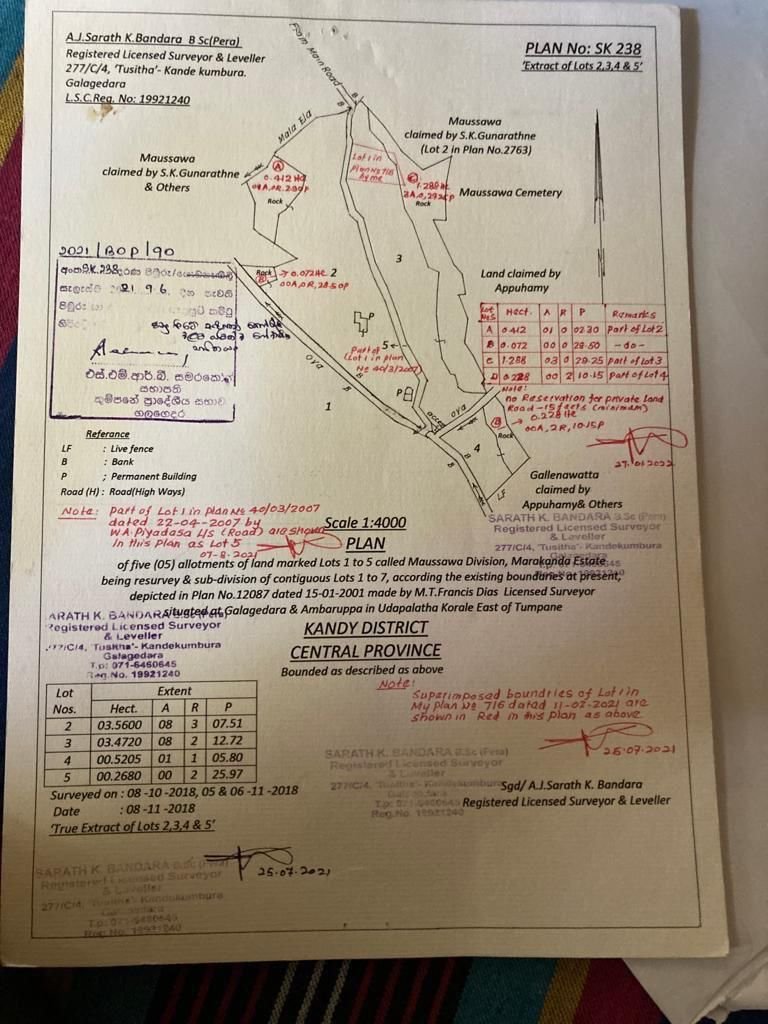 A.J.Sarath K.Bandara B Sc(Pera)
Registered Licensed Surveyor & Leveller
277/C/4, 'Tusitha'- Kande kumbura.
Galagedara
L.S.C.Reg. No: 19921240
PLAN No: SK 238
'Extract of Lots 2,3,4 & 5'
From Main Road
B
B
Mala Ela
Maussawa
claimed by S.K.Gunarathne
(Lot 2 in Plan No.2763)
Maussawa
claimed by S.K.Gunarathne
& Others
A
0.412 He
Rock
Lot 1 in
Plan No 716
by me
C
1.288 He
Rock
Maussawa Cemetery
2021/BOP/90
Rock
B
0.072 He
00A, 0R, 28.50P
2
3
Land claimed by
Appuhamy
Lot Nos Hect. A R P Remarks
A 0.412 01 0 02.30 Part of Lot 2
B 0.072 00 0 28.50 - do -
C 1.288 03 0 29.25 Part of Lot 3
D 0.228 00 2 10.15 Part of Lot 4
Note:
no Reservation for private Land
Road - 15 feets (minimam)
P
5
Part of
(Lot 1 in plan
No 40/3/2007)
P
Oya
B
B
1
Oya
D
0.228 He
00A, 2R, 10.15P
Rock
4
B
B
LF
27.01.2022
එස්.එම්.ආර්.බී. සමරකෝන්
සභාපති
තුම්පනේ ප්‍රාදේශීය සභාව
ගලගෙදර
Referance
LF : Live fence
B : Bank
P ; Permanent Building
Road (H) : Road(High Ways)
Gallenawatta
claimed by
Appuhamy& Others
Note: part of Lot 1 in Plan No 40/03/2007
dated 22-04-2007 by
W.A. Piyadasa L/S (Road) are shown
In this Plan as Lot 5
07-8-2021
SARATH K. BANDARA B.Sc (Pera)
Registered Licensed Surveyor
& Leveller
277/C/4, 'Tusitha'- Kandekumbura
Scale 1:4000
PLAN
of five (05) allotments of land marked Lots 1 to 5 called Maussawa Division, Marakanda Estate
being resurvey & sub-division of contiguous Lots 1 to 7, according the existing boundaries at present,
depicted in Plan No.12087 dated 15-01-2001 made by M.T.Francis Dias Licensed Surveyor
situated at Galagedara & Ambaruppa in Udapalatha Korale East of Tumpane
ARATH K. BANDARA B.Sc (Pera)
Registered Licensed Surveyor
& Leveller
277/C/4, 'Tusitha'- Kandekumbura
Galagedara
T.p: 071-6460645
Reg.No. 19921240
KANDY DISTRICT
CENTRAL PROVINCE
Bounded as described as above
Note:
Superimposed boundries of Lot 1 in
My Plan No 716 dated 11-02-2021 are
shown in Red in this plan as above
25.07.2021
Lot Nos. Extent
Hect. A R P
2 03.5600 08 3 07.51
3 03.4720 08 2 12.72
4 00.5205 01 1 05.80
5 00.2680 00 2 25.97
SARATH K. BANDARA B.Sc (Pera)
Registered Licensed Surveyor
& Leveller
277/C/4, 'Tusitha'- Kandekumbura
Reg.No. 19921240
Sgd/ A.J.Sarath K. Bandara
Registered Licensed Surveyor & Leveller
Surveyed on : 08 -10 -2018, 05 & 06 -11 -2018
Date : 08 -11 -2018
'True Extract of Lots 2,3,4 & 5'
25.07.2021
SARATH K. BANDARA B.Sc (Pera)
Registered Licensed Surveyor
& Leveller
277/C/4, 'Tusitha'- Kandekumbura
T.p: 071-6460645
Reg.No. 19921240